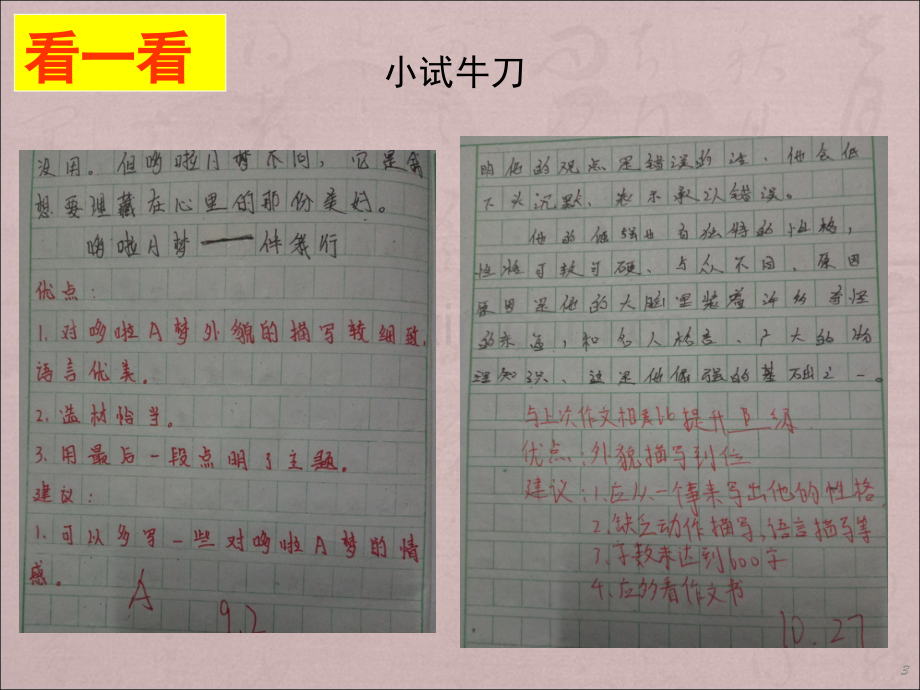 看一看
小试牛刀
没用。但哆啦A梦不同，它是
想要埋藏在心里的那份美好。
哆啦A梦——伴我行
优点：
1.对哆啦A梦外貌的描写较细致,
语言优美。
2.选材恰当。
3.用最后一段点明了主题。
建议：
1.可以多写一些对哆啦A梦的情
感。
A
9.2
明他的观点是错误的话，他会低
下头沉默，表示承认错误。
他的倔强也有独特的性格，
性格可软可硬、与众不同、原因
原因是他的大脑里装着许多奇怪
的东西，和名人格言、广大的物
理知识、这是他倔强的基石出之一。
与上次作文相比提升 B 级
优点：外貌描写到位
建议：1.应从一个事来写出他的性格
2.缺乏动作描写，语言描写等
3.字数未达到600字
4.应多看作文书
10.27
3